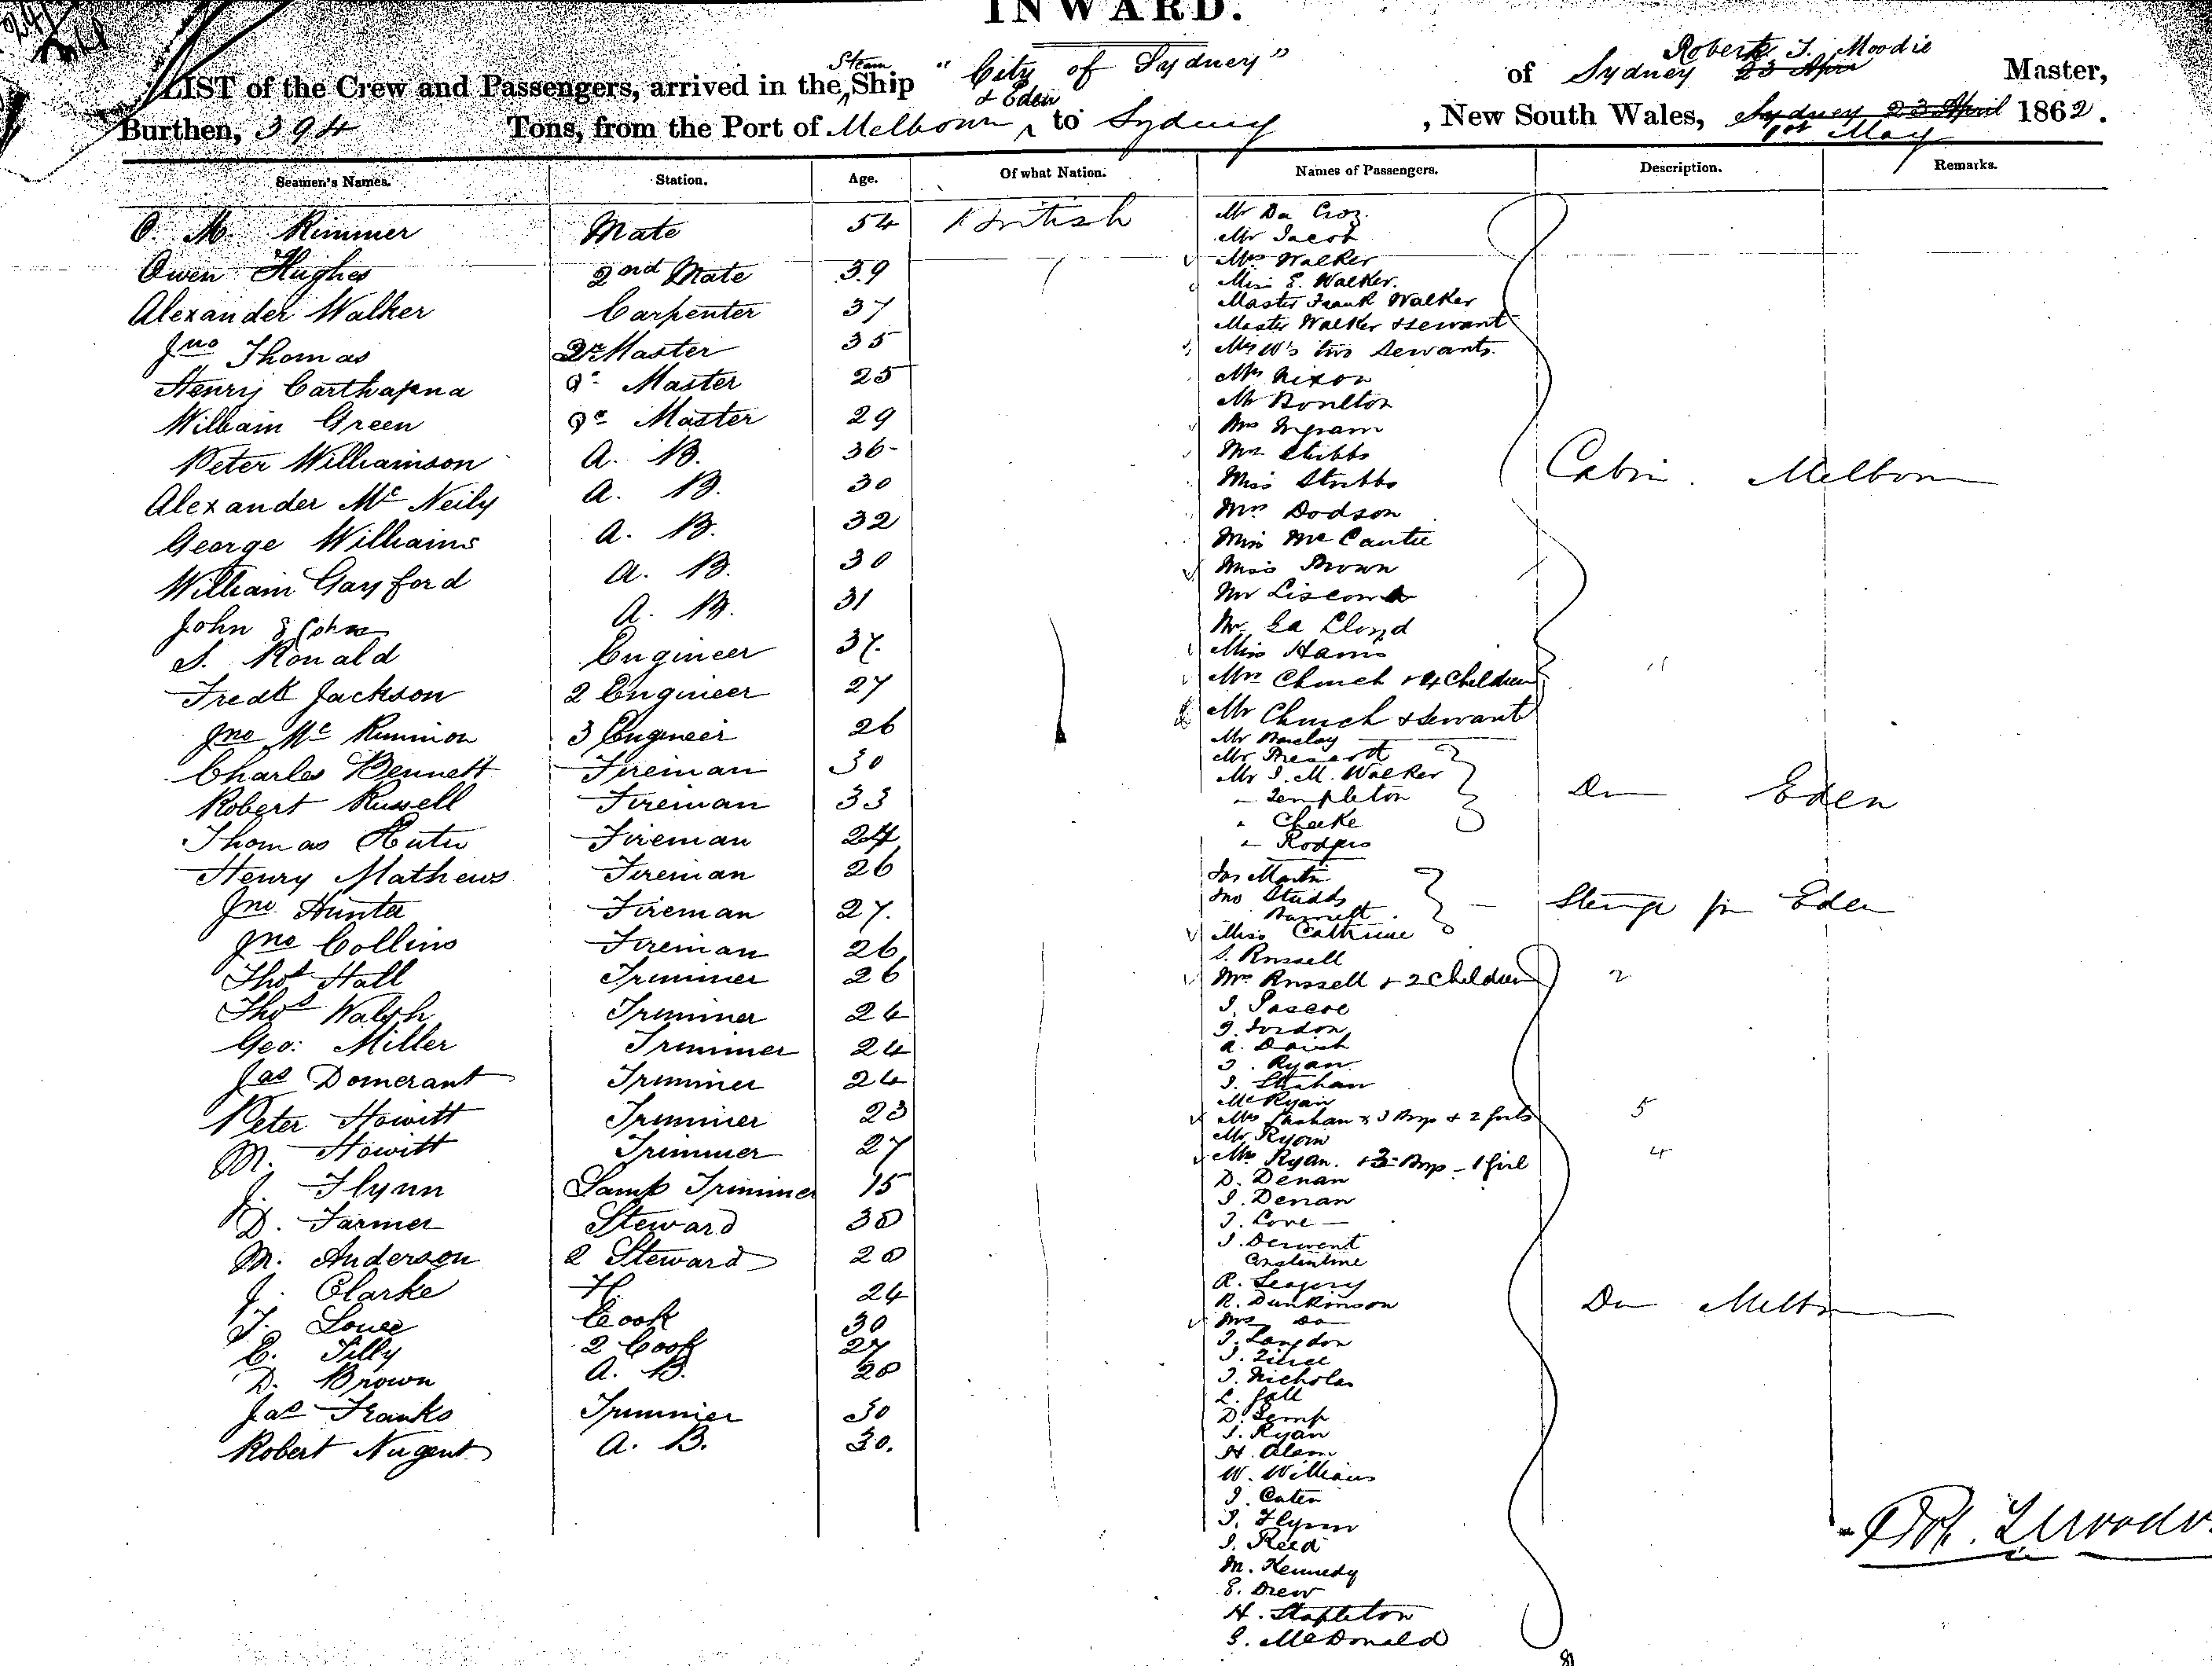 INWARD.
LIST of the Crew and Passengers, arrived in the Steam Ship "City of Sydney" of Sydney 23 Apr Robert T. Moodie Master,
Burthen, 394 Tons, from the Port of Melbourn & Eden to Sydney, New South Wales, Sydney 23 April 1st May 1862.
Seamen's Names. Station. Age. Of what Nation. Names of Passengers. Description. Remarks.
O. M. Rimmer Mate 54 British
Owen Hughes 2nd Mate 39
Alexander Walker Carpenter 37
Jno Thomas Qr Master 35
Henry Carthapna Qr Master 25
William Green Qr Master 29
Peter Williamson A. B. 36
Alexander Mc Neily A. B. 30
George Williams A. B. 32
William Gayford A. B. 30
John A. B. 31
S. Ronald Engineer 37
Fredk Jackson 2 Engineer 27
Jno Mc Kinnion 3 Engineer 26
Charles Bennett Fireman 30
Robert Russell Fireman 33
Thomas Fireman 24
Henry Mathews Fireman 26
Jno Hunter Fireman 27.
Jno Collins Fireman 26
Thos Hall Trimmer 26
Thos Walsh Trimmer 24
Geo: Miller Trimmer 24
Jas Domerant Trimmer 24
Peter Howitt Trimmer 23
M. Howitt Trimmer 27
J. Flynn Lamp Trimmer 15
D. Farmer Steward 30
M. Anderson 2 Steward 20
J. Clarke 24
T. Cook 30
C. Tilly 2 Cook 27
D. Brown A. B. 20
Jas Franks Trimmer 30
Robert Nugent A. B. 30.
Mr Da Croz
Mr Jacob
Mrs Walker
Miss E. Walker.
Master Frank Walker
Master Walker & servant
Mrs W's two Servants.
Mrs Nixon
Mr Boulton
Mrs Ingram
Mrs Stibbs
Miss Stibbs
Mrs Dodson
Miss Mc Cantie
Miss Brown
Cabin Melbourn
Mr Liscomb
Mr La Cloyd
Miss Harris
Mrs Church & 4 Children "
Mr Church & Servant
Mr Barclay
Mr Prescott
Mr J. M. Walker
" Templeton
" Cheeke
" Rodgers
Do Eden
Jas Martin
Jno Studds
Barnett
Miss Cathrine
Steerage fm Eden
S. Russell
Mrs Russell & 2 Children 2
J. Pascoe
J. Jordon
A. Daish
J. Ryan
J. Strahan
Mc Ryan
Mrs Strahan & 3 Boys & 2 girls 5
Mr Ryan
Mrs Ryan. & 3 Boys - 1 Girl 4
D. Denan
J. Denan
J. Love
J. Derwent
Constentine
R. Seagery
R. Dunkinson
Mrs Do
Do Melbn
J. Langdon
J.
J. Nicholas
L. Gall
D. Kemp
J. Ryan
H. Olsen
W. Williams
J. Cater
J. Flynn
J. Reed
M. Kennedy
E. Drew
H. Stapleton
E. McDonald